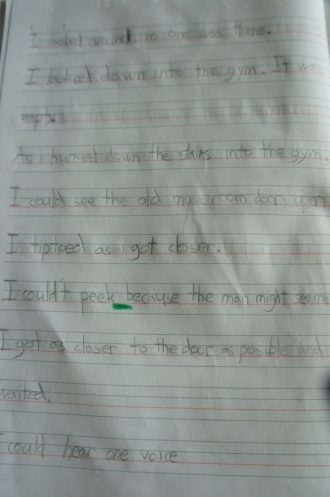 I looked around, no one was there.
I looked down into the gym. It w
empty.
As i hurried down the stairs into the gym
I could see the old mailroom door open
I tiptoed as i got closer.
I could't peek because the man might seem
I got as closer to the door as posible and
waited.
I could hear one voice